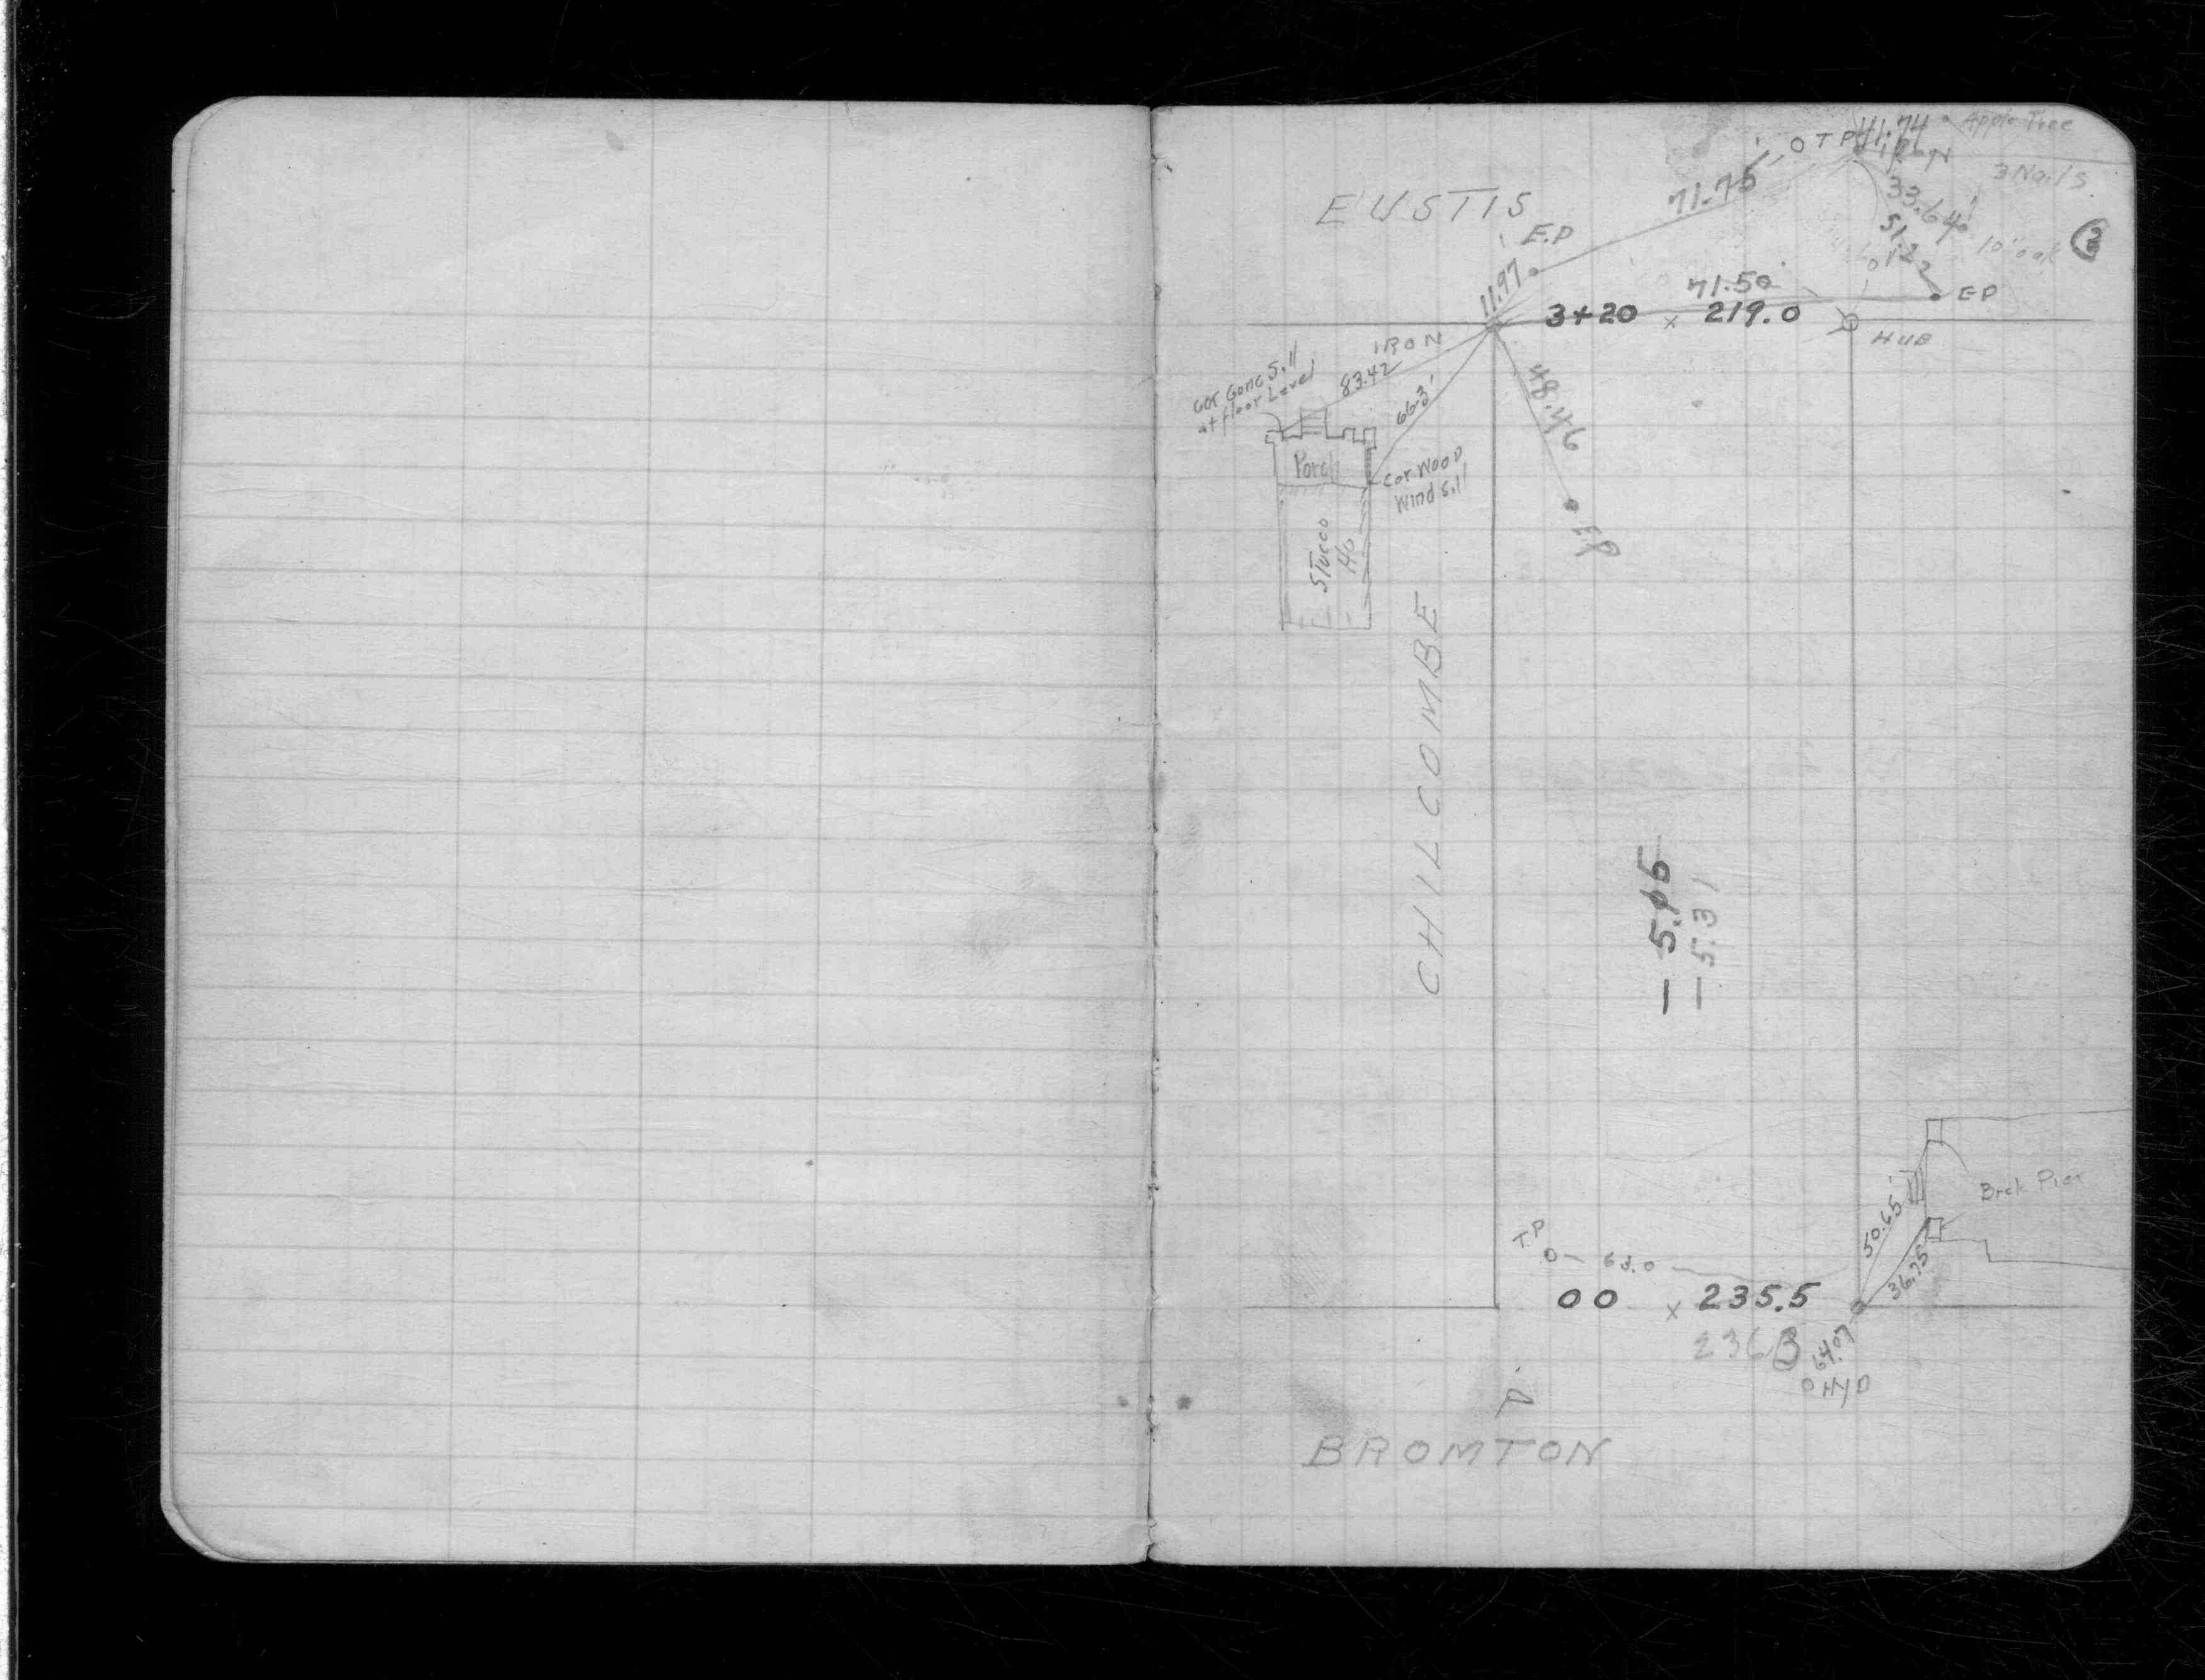 41.74 Apple Tree
O T P
3 Nails
71.75'
33.64'
EUSTIS
E.P
51.22
10" oak
2
11.97
71.50
E P
3+20 x 219.0
HUB
IRON
83.42
Cor Conc Sill
at floor Level
66.3'
48.46
Porch
Cor Wood
Wind Sill
EP
Stucco
Ho
CHILCOMBE
- 5.15
- 5.31
Brck Pier
50.65'
36.75
T.P
O - 63.0
00 x 235.5
236
64.07
O HYD
BROMTON